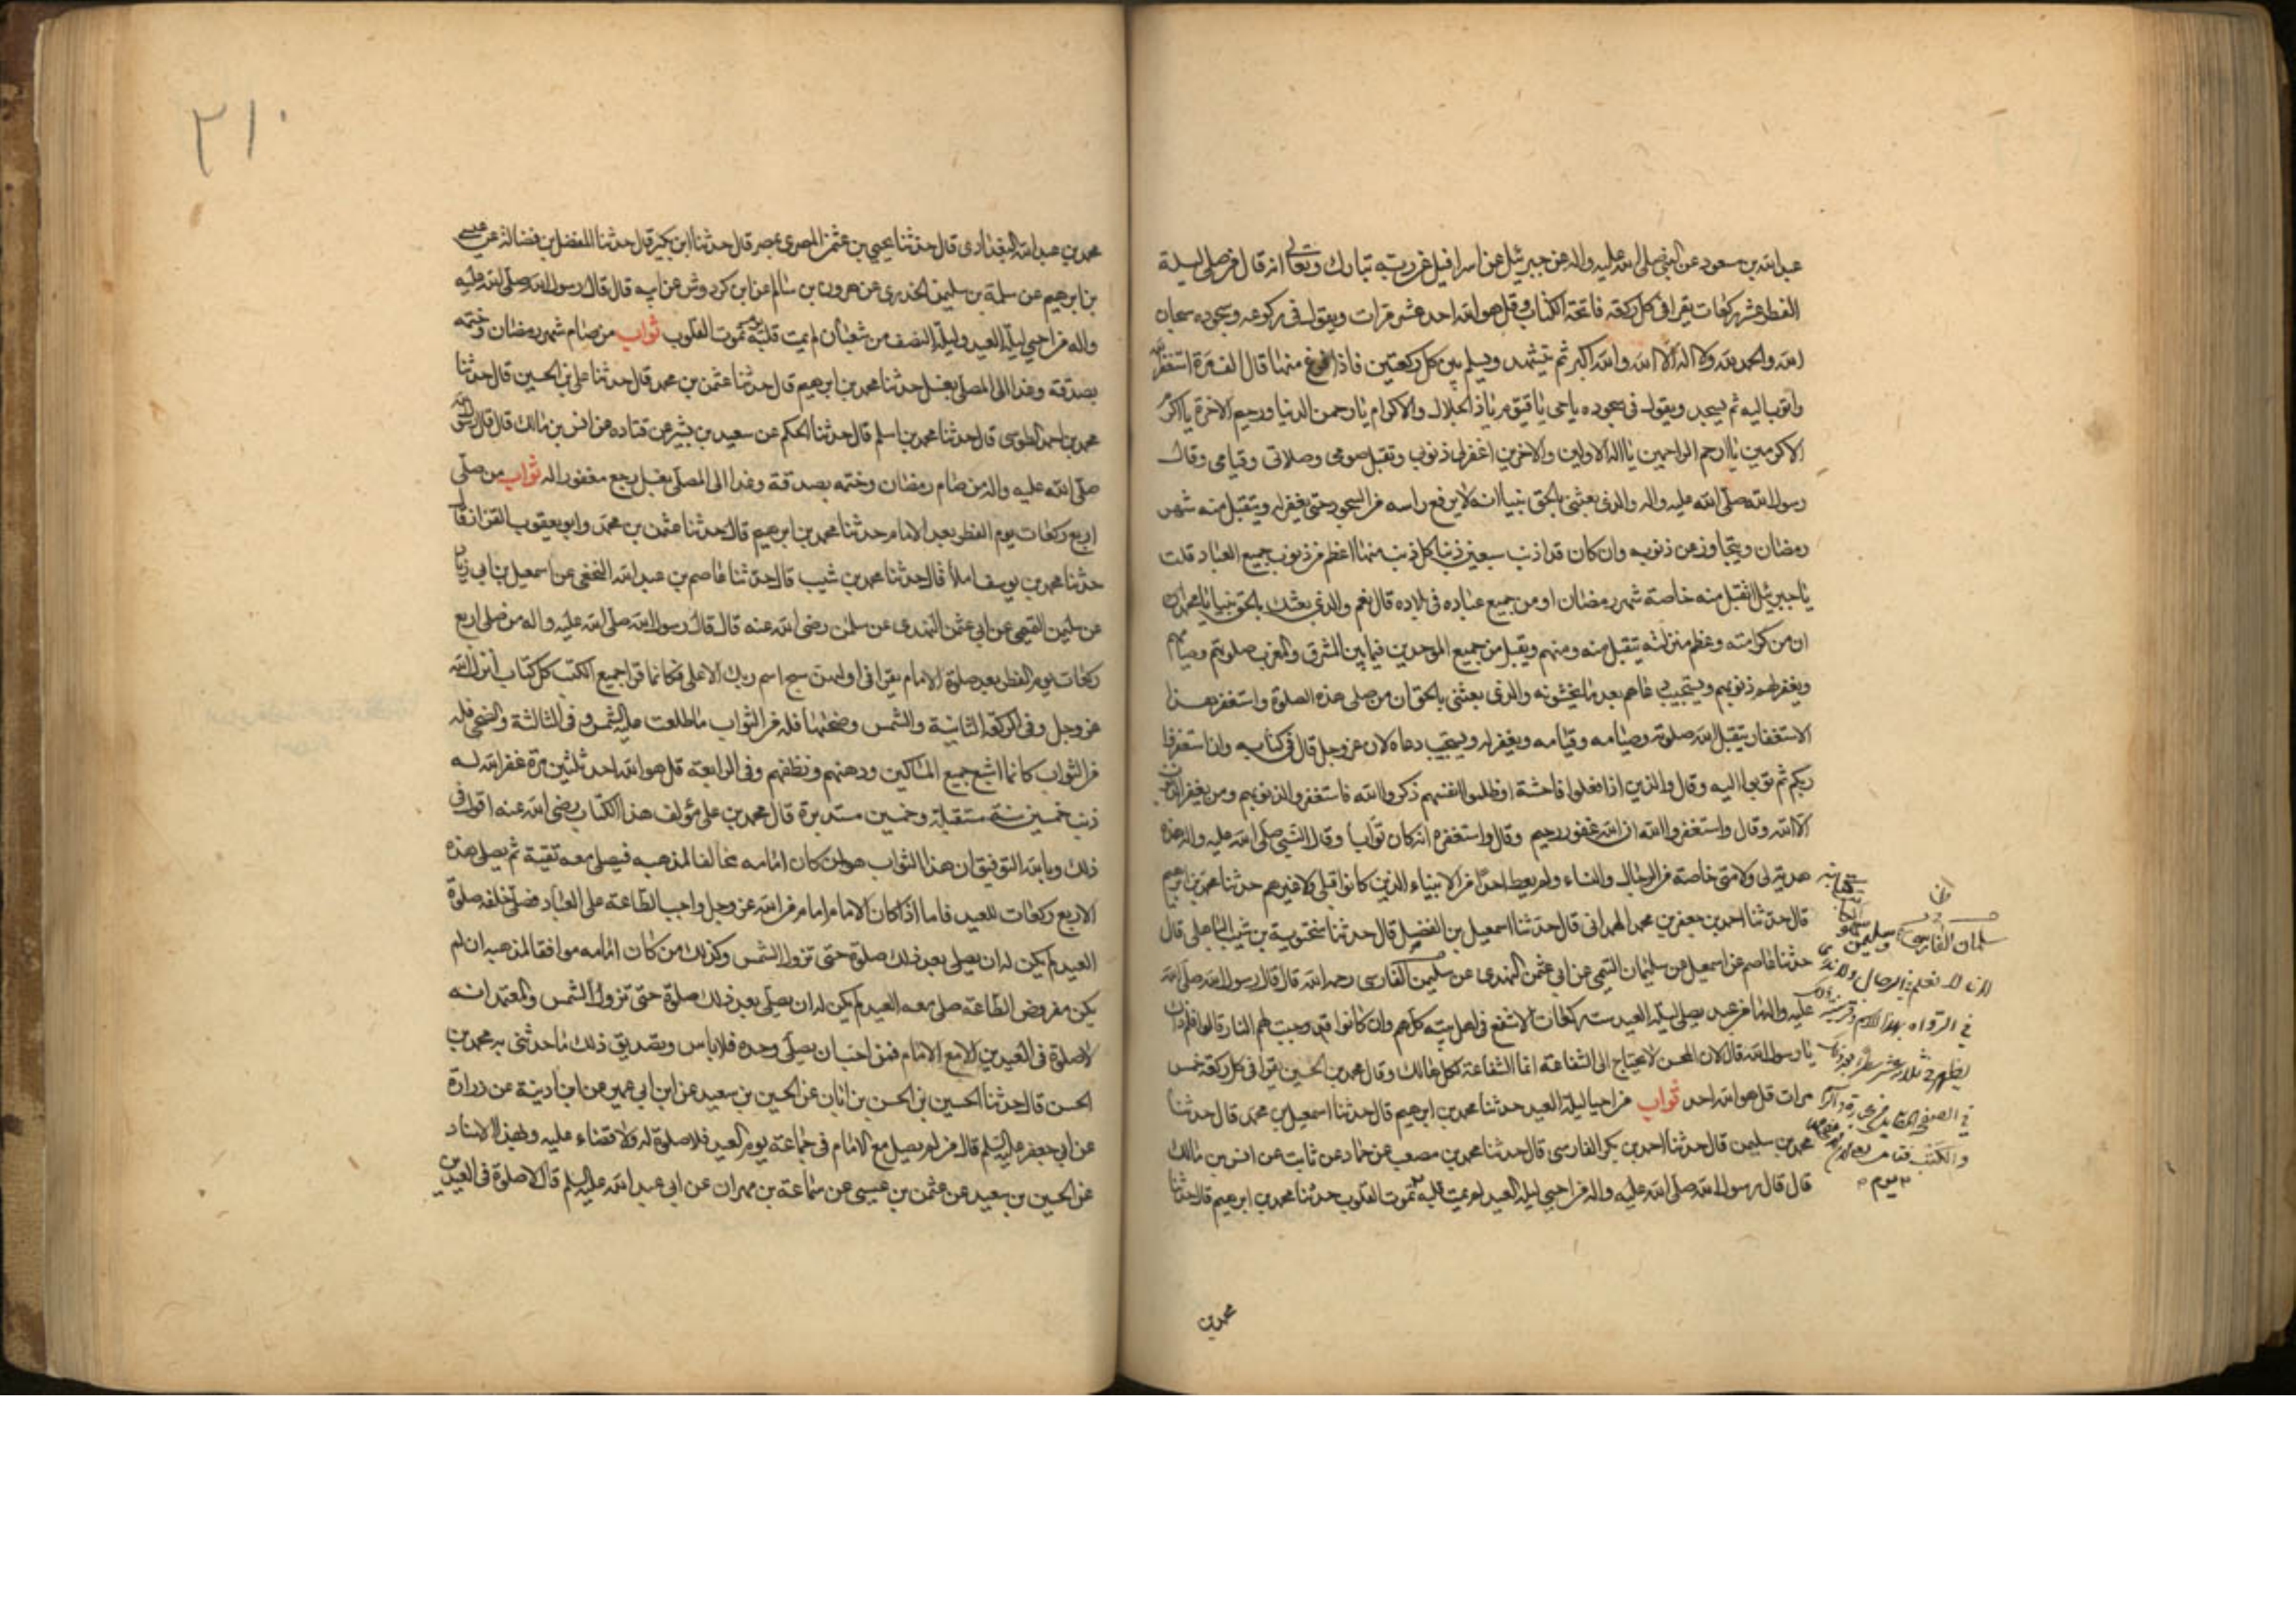 عبد الله بن مسعود عن النبي صلى الله عليه واله عن جبرئيل عن اسرافيل عن ربه تبارك وتعالى انه قال من صلى ليلة
الفطر عشر ركعات يقرا في كل ركعة فاتحة الكتاب وقل هو الله احد عشر مرات ويقول في ركوعه وسجوده سبحان
الله والحمد لله ولا اله الا الله والله اكبر ثم يتشهد ويسلم بين كل ركعتين فاذا فرغ منها قال الف مرة استغفر الله
واتوب اليه ثم يسجد ويقول في سجوده يا حي يا قيوم يا ذا الجلال والاكرام يا رحمن الدنيا ورحيم الاخرة يا اكرم
الاكرمين يا ارحم الراحمين يا اله الاولين والاخرين اغفر لي ذنوبي وتقبل صومي وصلاتي وقيامي وقال
رسول الله صلى الله عليه واله والذي بعثني بالحق نبيا انه لا يرفع راسه من السجود حتى يغفر له ويتقبل منه شهر
رمضان ويتجاوز عن ذنوبه وان كان قد اذنب سبعين ذنبا كل ذنب منها اعظم من ذنوب جميع العباد قلت
يا جبرئيل اتقبل منه خاصة شهر رمضان او من جميع عباده في بلاده قال نعم والذي بعثك بالحق نبيا يا محمد
ان من كرامته وعظم منزلته يتقبل منه ومنهم ويقبل من جميع الموحدين فيما بين المشرق والمغرب صلوتهم وصيامهم
ويغفر لهم ذنوبهم ويستجيب دعاهم بعد والذي بعثني بالحق ان من صلى هذه الصلوة واستغفر بهذا
الاستغفار يتقبل الله صلوته وصيامه وقيامه ويغفر له ويستجيب دعاه لان عز وجل قال في كتابه وان استغفروا
ربكم ثم توبوا اليه وقال والذين اذا فعلوا فاحشة او ظلموا انفسهم ذكروا الله فاستغفروا لذنوبهم ومن يغفر الذنوب
الا الله وقال واستغفروا الله ان الله غفور رحيم وقال واستغفره انه كان توابا وقال النبي صلى الله عليه واله هذه
هدية لي ولامتي خاصة من الرجال والنساء ولم يعط احدا من الانبياء الذين كانوا قبلي ولا غيرهم حدثنا محمد بن ابرهيم
قال حدثنا احمد بن جعفر بن محمد الهمداني قال حدثنا اسمعيل بن الفضيل قال حدثنا سختويه بن شبيب الباهلي قال
حدثنا عاصم عن اسمعيل عن سليمان التيمي عن ابي عثمن النهدي عن سليمن الفارسي رحمه الله قال قال رسول الله صلى الله
عليه واله ما من عبد يصلي ليلة العيد ست ركعات الا شفع في اهل بيته كلهم وان كانوا قد وجبت لهم النار قالوا ولم ذاك
يا رسول الله قال لان المحسن لا يحتاج الى الشفاعة انما الشفاعة لكل هالك وقال محمد بن الحسين يقرا في كل ركعة خمس
مرات قل هو الله احد ثواب من احيا ليلة العيد حدثنا محمد بن ابرهيم قال حدثنا اسمعيل بن محمد قال حدثنا
محمد بن سليمن قال حدثنا احمد بن بكر الفارسي قال حدثنا محمد بن مصعب عن حماد عن ثابت عن انس بن مالك
قال قال رسول الله صلى الله عليه واله من احيى ليلة العيد لم يمت قلبه يوم تموت القلوب حدثنا محمد بن ابرهيم قال حدثنا
سلمان الفارسي
محمد بن
٢١٠
محمد بن عبد الله البغدادي قال حدثنا يحيى بن عثمن المصري بمصر قال حدثنا ابن بكير قال حدثنا المفضل بن فضالة عن عيسى
بن ابرهيم عن سلمة بن سليمن الجزري عن هرون بن سالم عن ابن كردوش عن ابيه قال قال رسول الله صلى الله عليه
واله من احيى ليلة العيد وليلة النصف من شعبان لم يمت قلبه يوم تموت القلوب ثواب من صام شهر رمضان وختمه
بصدقة وغدا الى المصلى بغسل حدثنا محمد بن ابرهيم قال حدثنا عثمن بن محمد قال حدثنا علي بن الحسين قال حدثنا
محمد بن احمد الطوسي قال حدثنا محمد بن اسلم قال حدثنا الحكم عن سعيد بن بشير عن قتاده عن انس بن مالك قال قال رسول الله
صلى الله عليه واله من صام رمضان وختمه بصدقة وغدا الى المصلى بغسل رجع مغفورا له ثواب من صلى
اربع ركعات يوم الفطر بعد الامام حدثنا محمد بن ابرهيم قال حدثنا عثمن بن محمد وابو يعقوب القزاز قالا
حدثنا محمد بن يوسف املا قال حدثنا محمد بن شبيب قال حدثنا عاصم بن عبد الله النخعي عن اسمعيل بن ابي زياد
عن سليمن التيمي عن ابي عثمن النهدي عن سلمن رضى الله عنه قال قال رسول الله صلى الله عليه واله من صلى اربع
ركعات يوم الفطر بعد صلوة الامام يقرا في اولهن سبح اسم ربك الاعلى فكانما قرا جميع الكتب كل كتاب انزله الله
عز وجل وفي الركعة الثانية والشمس وضحها فله من الثواب ما طلعت عليه الشمس وفي الثالثة والضحى فله
من الثواب كانما اشبع جميع المساكين ودهنهم ونظفهم وفي الرابعة قل هو الله احد ثلثين مرة غفر الله له
ذنب خمسين سنة مستقبلة وخمسين مستدبرة قال محمد بن علي مؤلف هذا الكتاب رضى الله عنه اقول في
ذلك وبالله التوفيق ان هذا الثواب هو لمن كان امامه مخالفا لمذهبه فيصلي معه تقية ثم يصلي هذه
الاربع ركعات للعيد فاما اذا كان الامام امام من الله عز وجل واجب الطاعة على العباد فصلى خلفه صلوة
العيد لم يكن له ان يصلي بعد ذلك صلوة حتى تزول الشمس وكذلك من كان امامه موافقا لمذهبه ان لم
يكن مفروض الطاعة صلى معه العيد لم يكن له ان يصلي بعد ذلك صلوة حتى تزول الشمس والمعتمد انه
لا صلوة في العيدين الا مع الامام فمن احب ان يصلي وحده فلا باس وتصديق ذلك ما حدثني به محمد بن
الحسن قال حدثنا الحسين بن الحسن بن ابان عن الحسين بن سعيد عن ابن ابي عمير عن ابن اذينة عن زرارة
عن ابي جعفر عليه السلم قال من لم يصل مع الامام في جماعة يوم العيد فلا صلوة له ولا قضاء عليه وبهذا الاسناد
عن الحسين بن سعيد عن عثمن بن عيسى عن سماعة بن مهران عن ابي عبد الله عليه السلم قال لا صلوة في العيدين